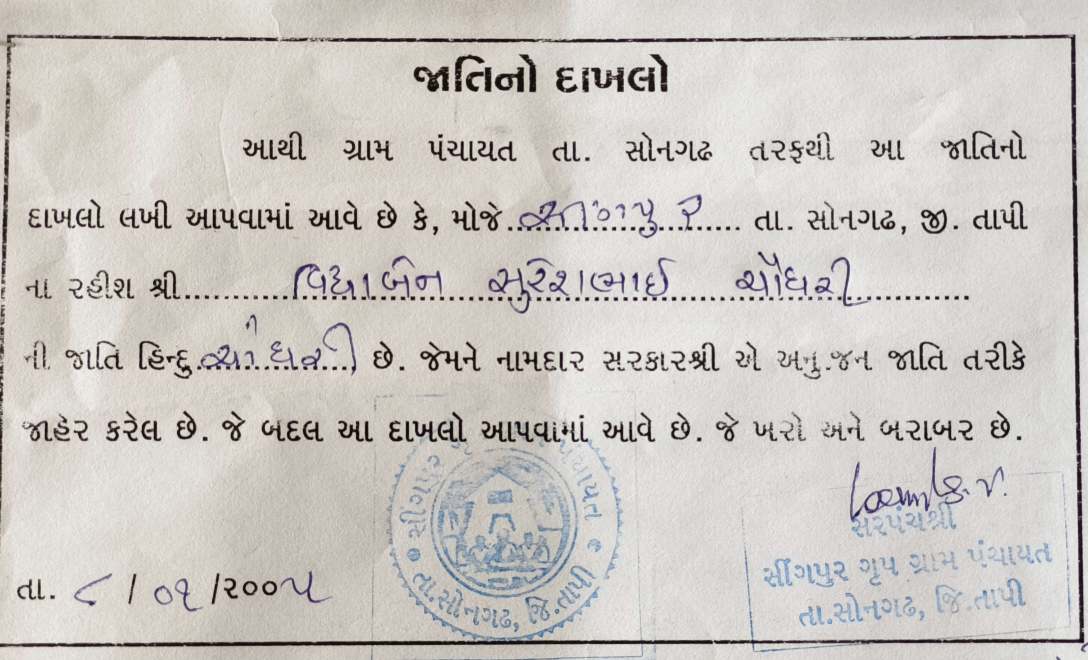 જાતિનો દાખલો
આથી ગ્રામ પંચાયત તા. સોનગઢ તરફથી આ જાતિનો
દાખલો લખી આપવામાં આવે છે કે, મોજે......તા. સોનગઢ, જી. તાપી
ના રહીશ શ્રી.....વિદ્યાબેન સુરેશભાઈ ચૌધરી.....
ની જાતિ હિન્દુ ચૌધરી છે. જેમને નામદાર સરકારશ્રી એ અનુ.જન જાતિ તરીકે
જાહેર કરેલ છે. જે બદલ આ દાખલો આપવામાં આવે છે. જે ખરો અને બરાબર છે.
સરપંચશ્રી
સીંગપુર ગૃપ ગ્રામ પંચાયત
તા.સોનગઢ, જિ.તાપી
તા.સોનગઢ, જિ.તાપી
તા. ૮/૦૧/૨૦૦૫